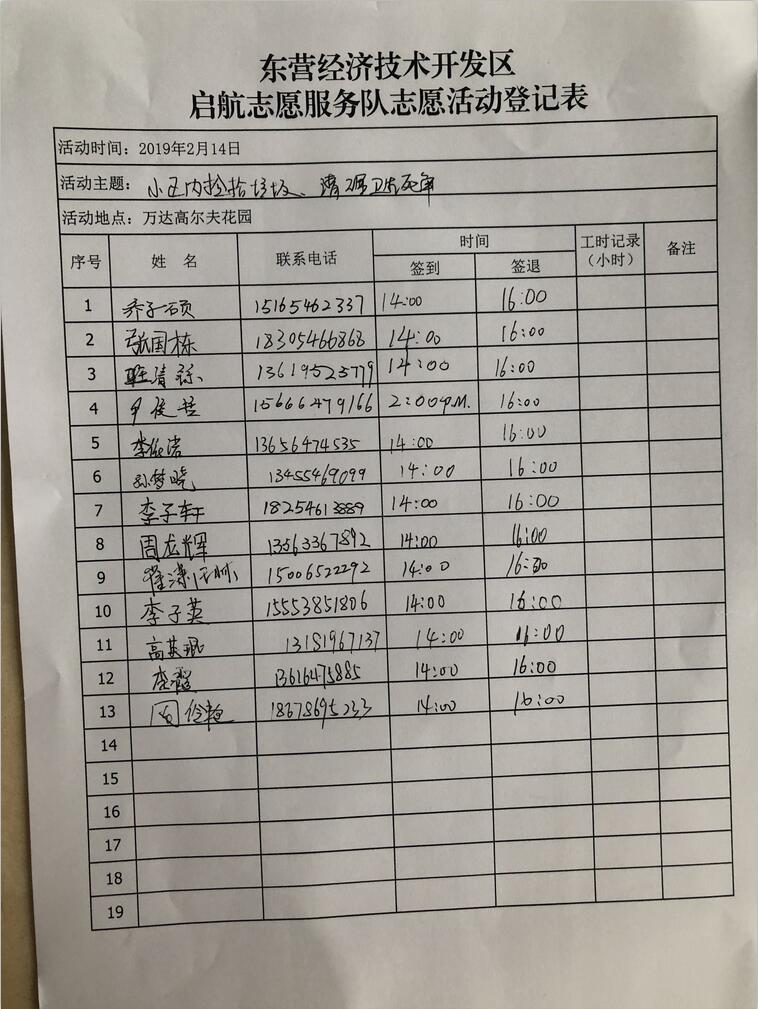 东营经济技术开发区
启航志愿服务队志愿活动登记表
活动时间：2019年2月14日
活动主题：小区内捡拾垃圾、清理卫生死角
活动地点：万达高尔夫花园
序号 姓 名 联系电话 时间 工时记录（小时） 备注
签到 签退
1 乔子硕 15165462337 14:00 16:00
2 张国栋 18305466868 14:00 16:00
3 13619525779 14:00 16:00
4 15666479166 2:00P.M. 16:00
5 13656474535 14:00 16:00
6 孙梦晓 13455469099 14:00 16:00
7 李子轩 18254613889 14:00 16:00
8 周龙辉 13563367892 14:00 16:00
9 15006522292 14:00 16:30
10 李子英 15553851806 14:00 16:00
11 高英琨 13181967137 14:00 16:00
12 13616475885 14:00 16:00
13 18678695233 14:00 16:00
14
15
16
17
18
19